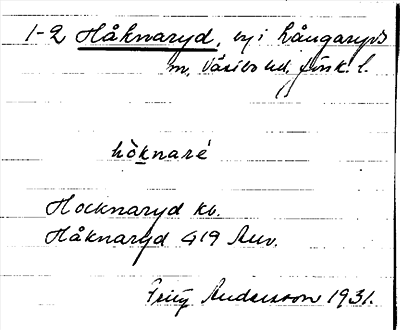 1-2 Håknaryd, by i Långaryds
sn, Västbo hd. Jönk. l.
hòknaré
Hocknaryd kb.
Håknaryd 419 Auv.
Fritz Andersson 1931.